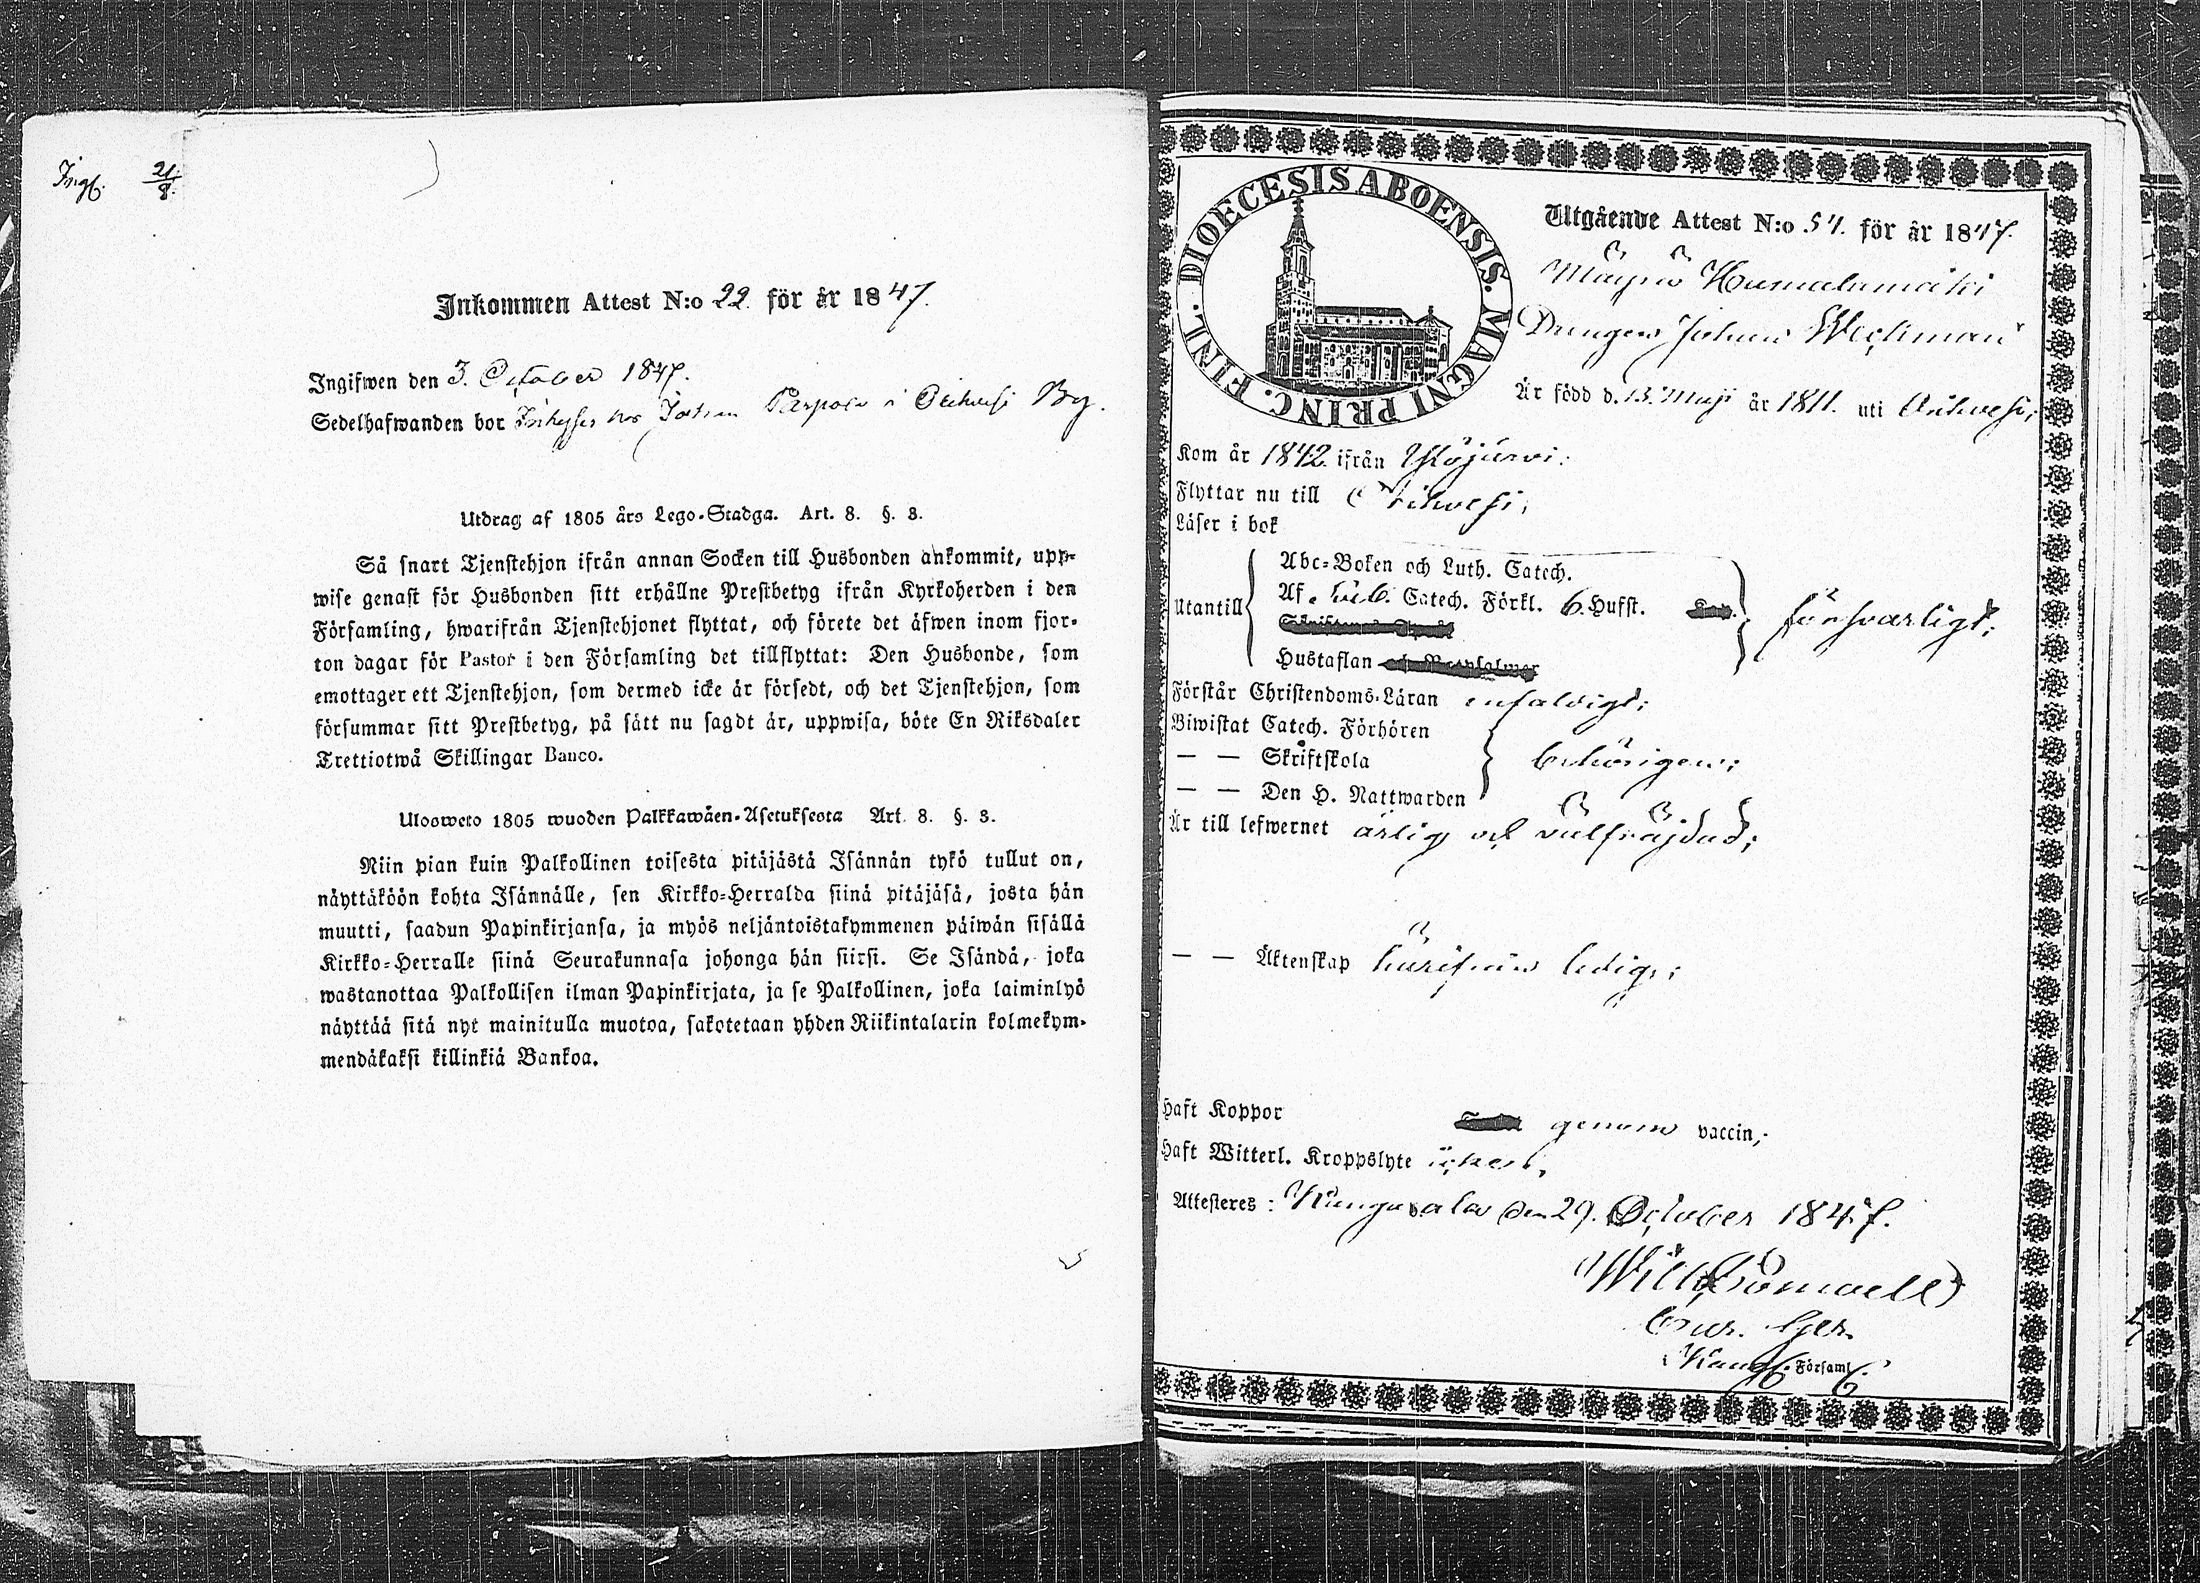 Ingf. 21/9.
Inkommen Attest N:o 22. för år 1847.
Ingifwen den 3. October 1847.
Sedelhafwanden bor Inhyses hos Johan i Orihvesi By.
Utdrag af 1805 års Lego-Stadga. Art. 8. §. 3.
Så snart Tjenstehjon ifrån annan Socken till Husbonden ankommit, upp-
wise genast för Husbonden sitt erhållne Prestbetyg ifrån Kyrkoherden i den
Församling, hwarifrån Tjenstehjonet flyttat, och förete det äfwen inom fjor-
ton dagar för Pastor i den Församling det tillflyttat: Den Husbonde, som
emottager ett Tjenstehjon, som dermed icke är försedt, och det Tjenstehjon, som
försummar sitt Prestbetyg, på sätt nu sagdt är, uppwisa, böte En Riksdaler
Trettiotwå Skillingar Banco.
Ulosweto 1805 wuoden Palkkawäen-Asetuksesta Art. 8. §. 3.
Niin pian kuin Palkollinen toisesta pitäjästä Isännän tykö tullut on,
näyttäköön kohta Isännälle, sen Kirkko-Herralda siinä pitäjäsä, josta hän
muutti, saadun Papinkirjansa, ja myös neljäntoistakymmenen päiwän sisällä
Kirkko-Herralle siinä Seurakunnasa johonga hän siirsi. Se Isändä, joka
wastanottaa Palkollisen ilman Papinkirjata, ja se Palkollinen, joka laiminlyö
näyttää sitä nyt mainitulla muotoa, sakotetaan yhden Riikintalarin kolmekym-
mendäkaksi killinkiä Bankoa.
DIOECESIS ABOENSIS. MAGNI PRINC. FINL.
Utgående Attest N:o 54. för år 1847.
Humalamäki
Drängen Johan Weckman
Är född d. 13. Maji år 1811. uti Orihvesi;
Kom år 1842. ifrån Ylöjärvi;
Flyttar nu till Orihvesi;
Läser i bok
Utantill
Abc-Boken och Luth. Catech.
Af Catech. Förkl. 6. Hufst.
Hustaflan
försvarligt;
Förstår Christendoms-Läran enfaldigt;
Biwistat Catech. Förhören
— — Skriftskola
behörigen;
— — Den H. Nattwarden
Är till lefwernet ärlig och välfräjdad;
— — Äktenskap härifrån ledig;
Haft Koppor genom vaccin;
Haft Witterl. Kroppslyte icke;
Attesteres: Kangasala den 29. October 1847.
Församl